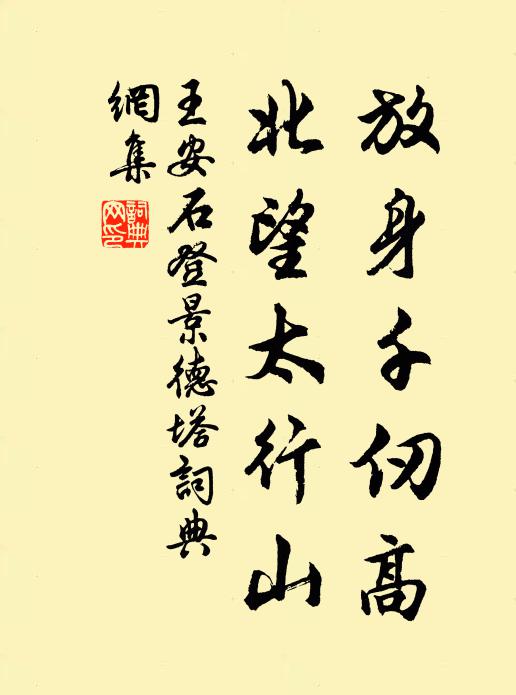 放身千仞高
北望太行山
王安石登景德塔詞典
網集
詞典
网印